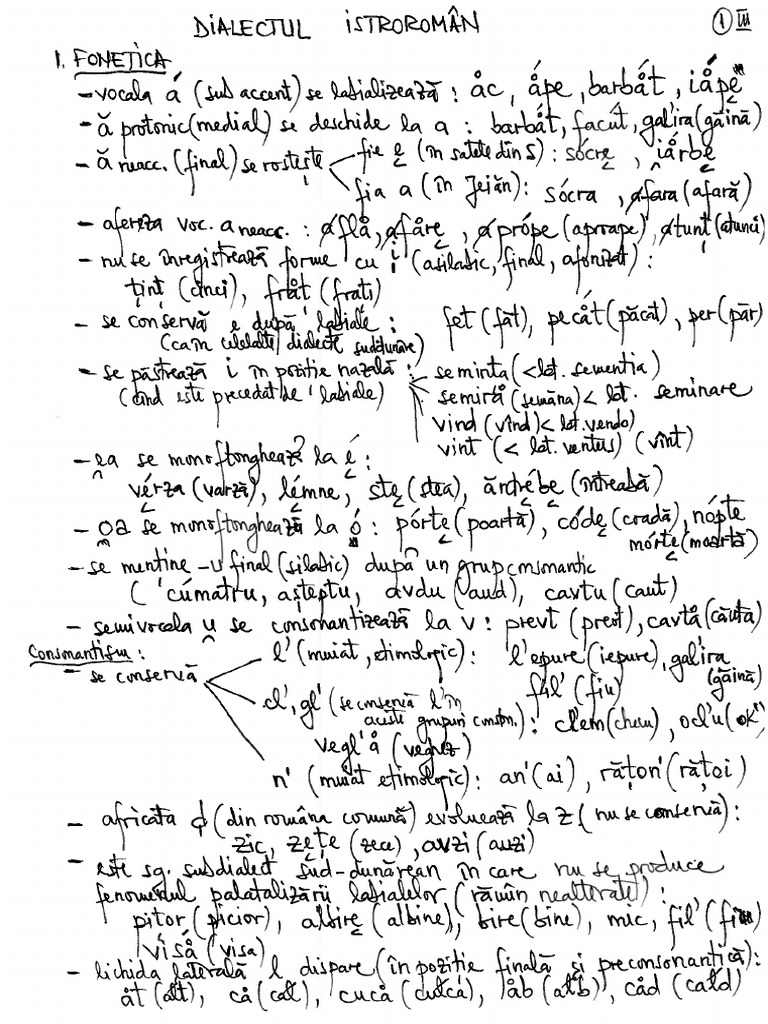 DIALECTUL ISTROROMÂN ① III
1. FONETICA
- vocala á (sub accent) se labializează: åc, åpe, barbåt, iåpę
- ă protonic (medial) se deschide la a: barbåt, facút, gal'ira (găină)
- ă neacc. (final) se rostește fie ę (în satele din S): sócrę, iårbę
fia a (în Jeiăn): sócra, afara (afară)
- afereza voc. a neacc.: aflå, afårę, aprópe (aproape), atunț (atunci)
- nu se înregistrează forme cu i (asilabic, final, afonizat):
ținț (cinci), fråț (frați)
- se conservă e după labiale: fet (făt), pecåt (păcat), per (păr)
(ca în celelalte dialecte suddunărene)
- se păstrează i în poziție nazală: seminta (<lat. sementia)
(când este precedat de labiale) semirå (semăna) < lat. seminare
vind (vînd) < lat. vendo
vint (< lat. ventus) (vînt)
- ea se monoftonghează la ę́:
vę́rza (varză), lę́mne, stę (stea), ăntrę́be (întreabă)
- oa se monoftonghează la ó: pórtę (poartă), códę (coadă), nópte
mórtę (moartă)
- se menține -u final (silabic) după un grup consonantic
( cúmatru, aștęptu, avdu (aud), cavtu (caut)
- semivocala u se consonantizează la v: prevt (preot), cavtå (căuta)
Consonantism:
- se conservă l' (muiat, etimologic): l'epure (iepure), gal'ira
(găină)
fil' (fiu)
cl', gl' (se conservă l' în
aceste grupuri conson.): cl'em (chem), ocl'u (ok')
vegl'å (veghez)
n' (muiat etimologic): an' (ai), rățon' (rățoi)
- africata d̦ (din româna comună) evoluează la z (nu se conservă):
zic, zęțe (zece), avzi (auzi)
- este sg. subdialect sud-dunărean în care nu se produce
fenomenul palatalizării labialelor (rămîn nealterate):
pitor (picior), albirę (albine), bire (bine), mic, fil' (fiu)
viså (visa)
- lichida laterală l dispare (în poziție finală și preconsonantică):
åt (alt), cå (cal), cucå (culca), åb (alb), cåd (cald)